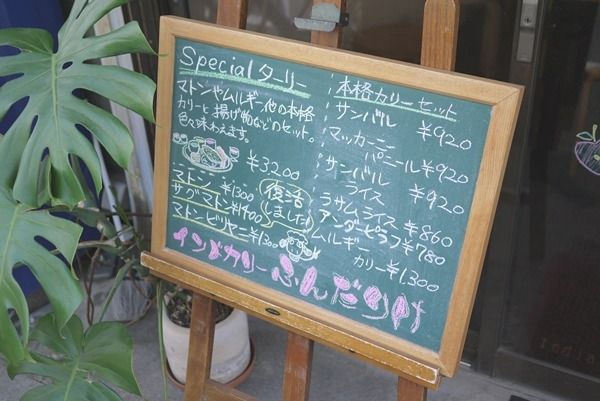 Specialターリー
マトンやムルギー他の本格
カリーと揚げ物などのセット。
色々味わえます。
¥3,200
マトン ¥1300
サグマトン¥1400
マトンビリヤニ¥1300
復活
しました!
本格カリーセット
サンバル ¥920
マッカーニー
パニール¥920
サンバル
ライス ¥920
ラサムライス ¥860
アンダーピラフ¥780
ムルギー
カリー¥1,300
インドカリー ふんだりけ